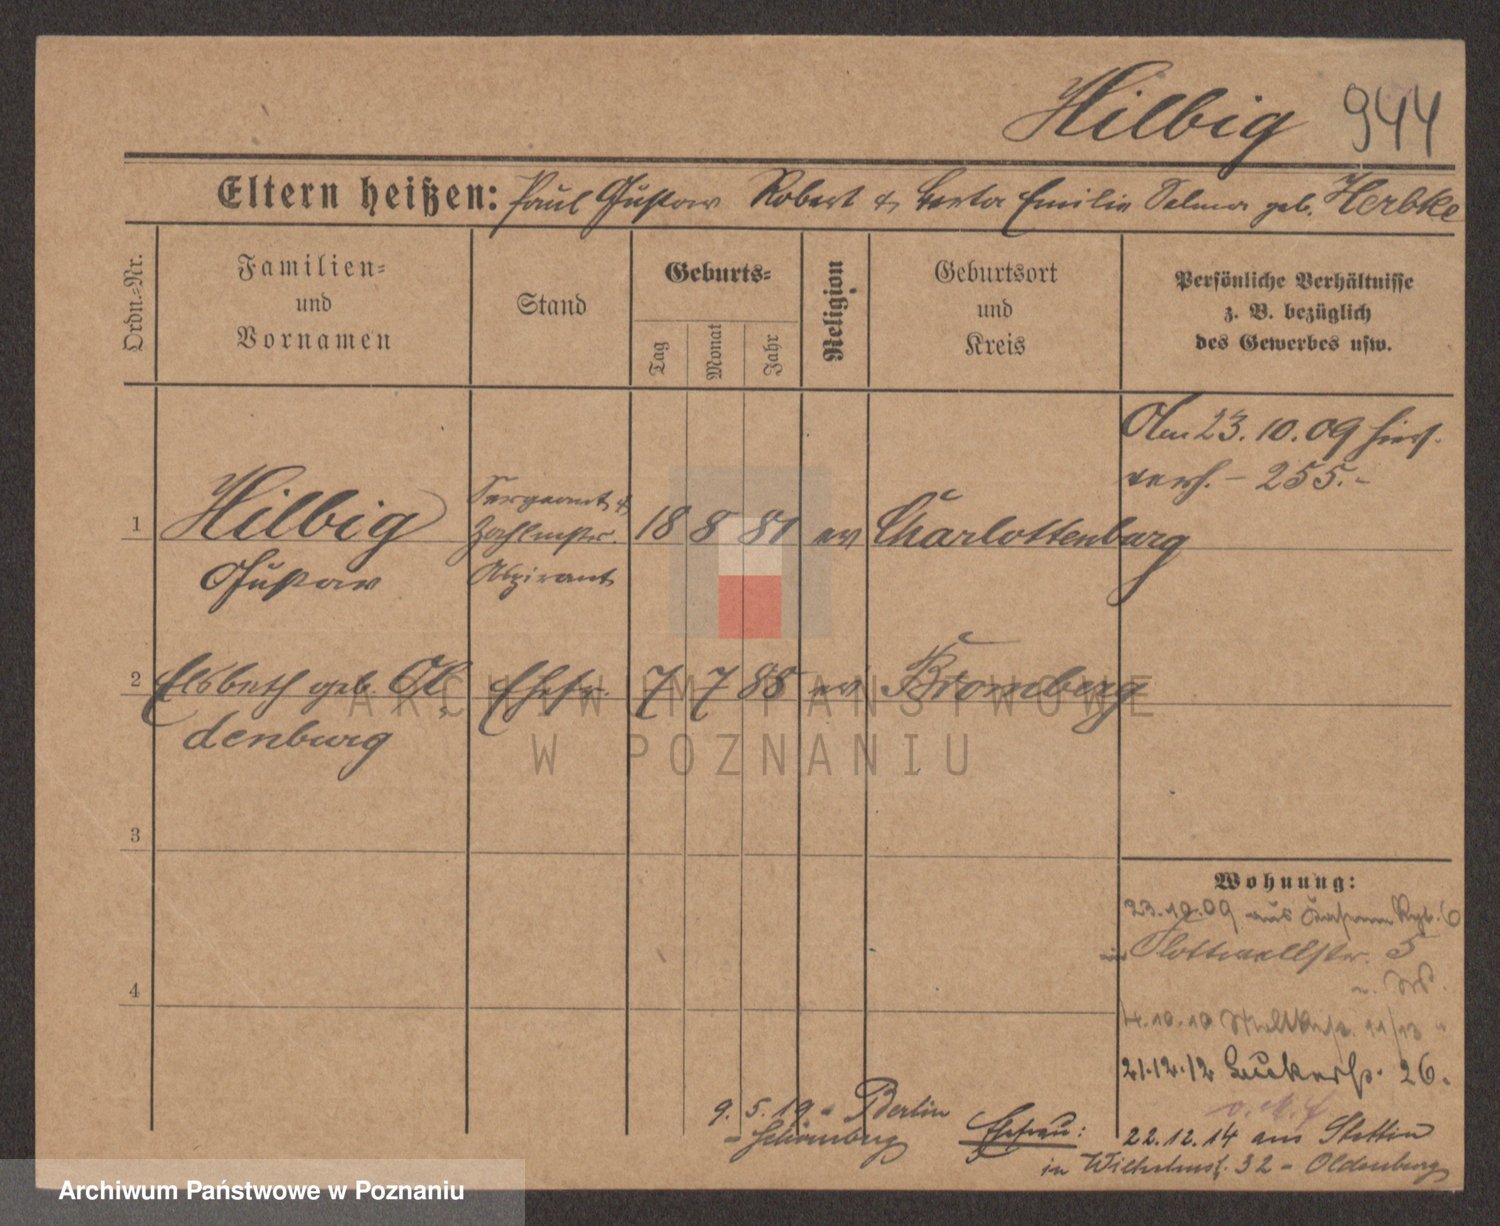 Hilbig 944
Eltern heißen: Paul Gustav Robert & Berta Emilie Selma geb. Herbke
Ordn.-Nr.
Familien-
und
Vornamen
Stand
Geburts-
Tag
Monat
Jahr
Religion
Geburtsort
und
Kreis
Persönliche Verhältnisse
z. B. bezüglich
des Gewerbes usw.
Am 23. 10. 09 hier
verh. – 255.-
1 Hilbig
Gustav
Sergeant &
Zahlmstr.
Aspirant
18 8 81 ev Charlottenburg
2 Elsbeth geb. Ol
denburg
Ehefr. 7 7 88 ev Bromberg
3
4
Wohnung:
23.10.09 aus Rgt. 6
Flottwellstr. 5
4.10.10 Moltkestr. 11/13
21.12.12 26.
9. 5. 19 - Berlin
- Schöneberg
Ehefrau:
22.12.14 aus Stettin
in Wilhelmst. 32 - Oldenburg
ARCHIWUM PAŃSTWOWE
W POZNANIU
Archiwum Państwowe w Poznaniu